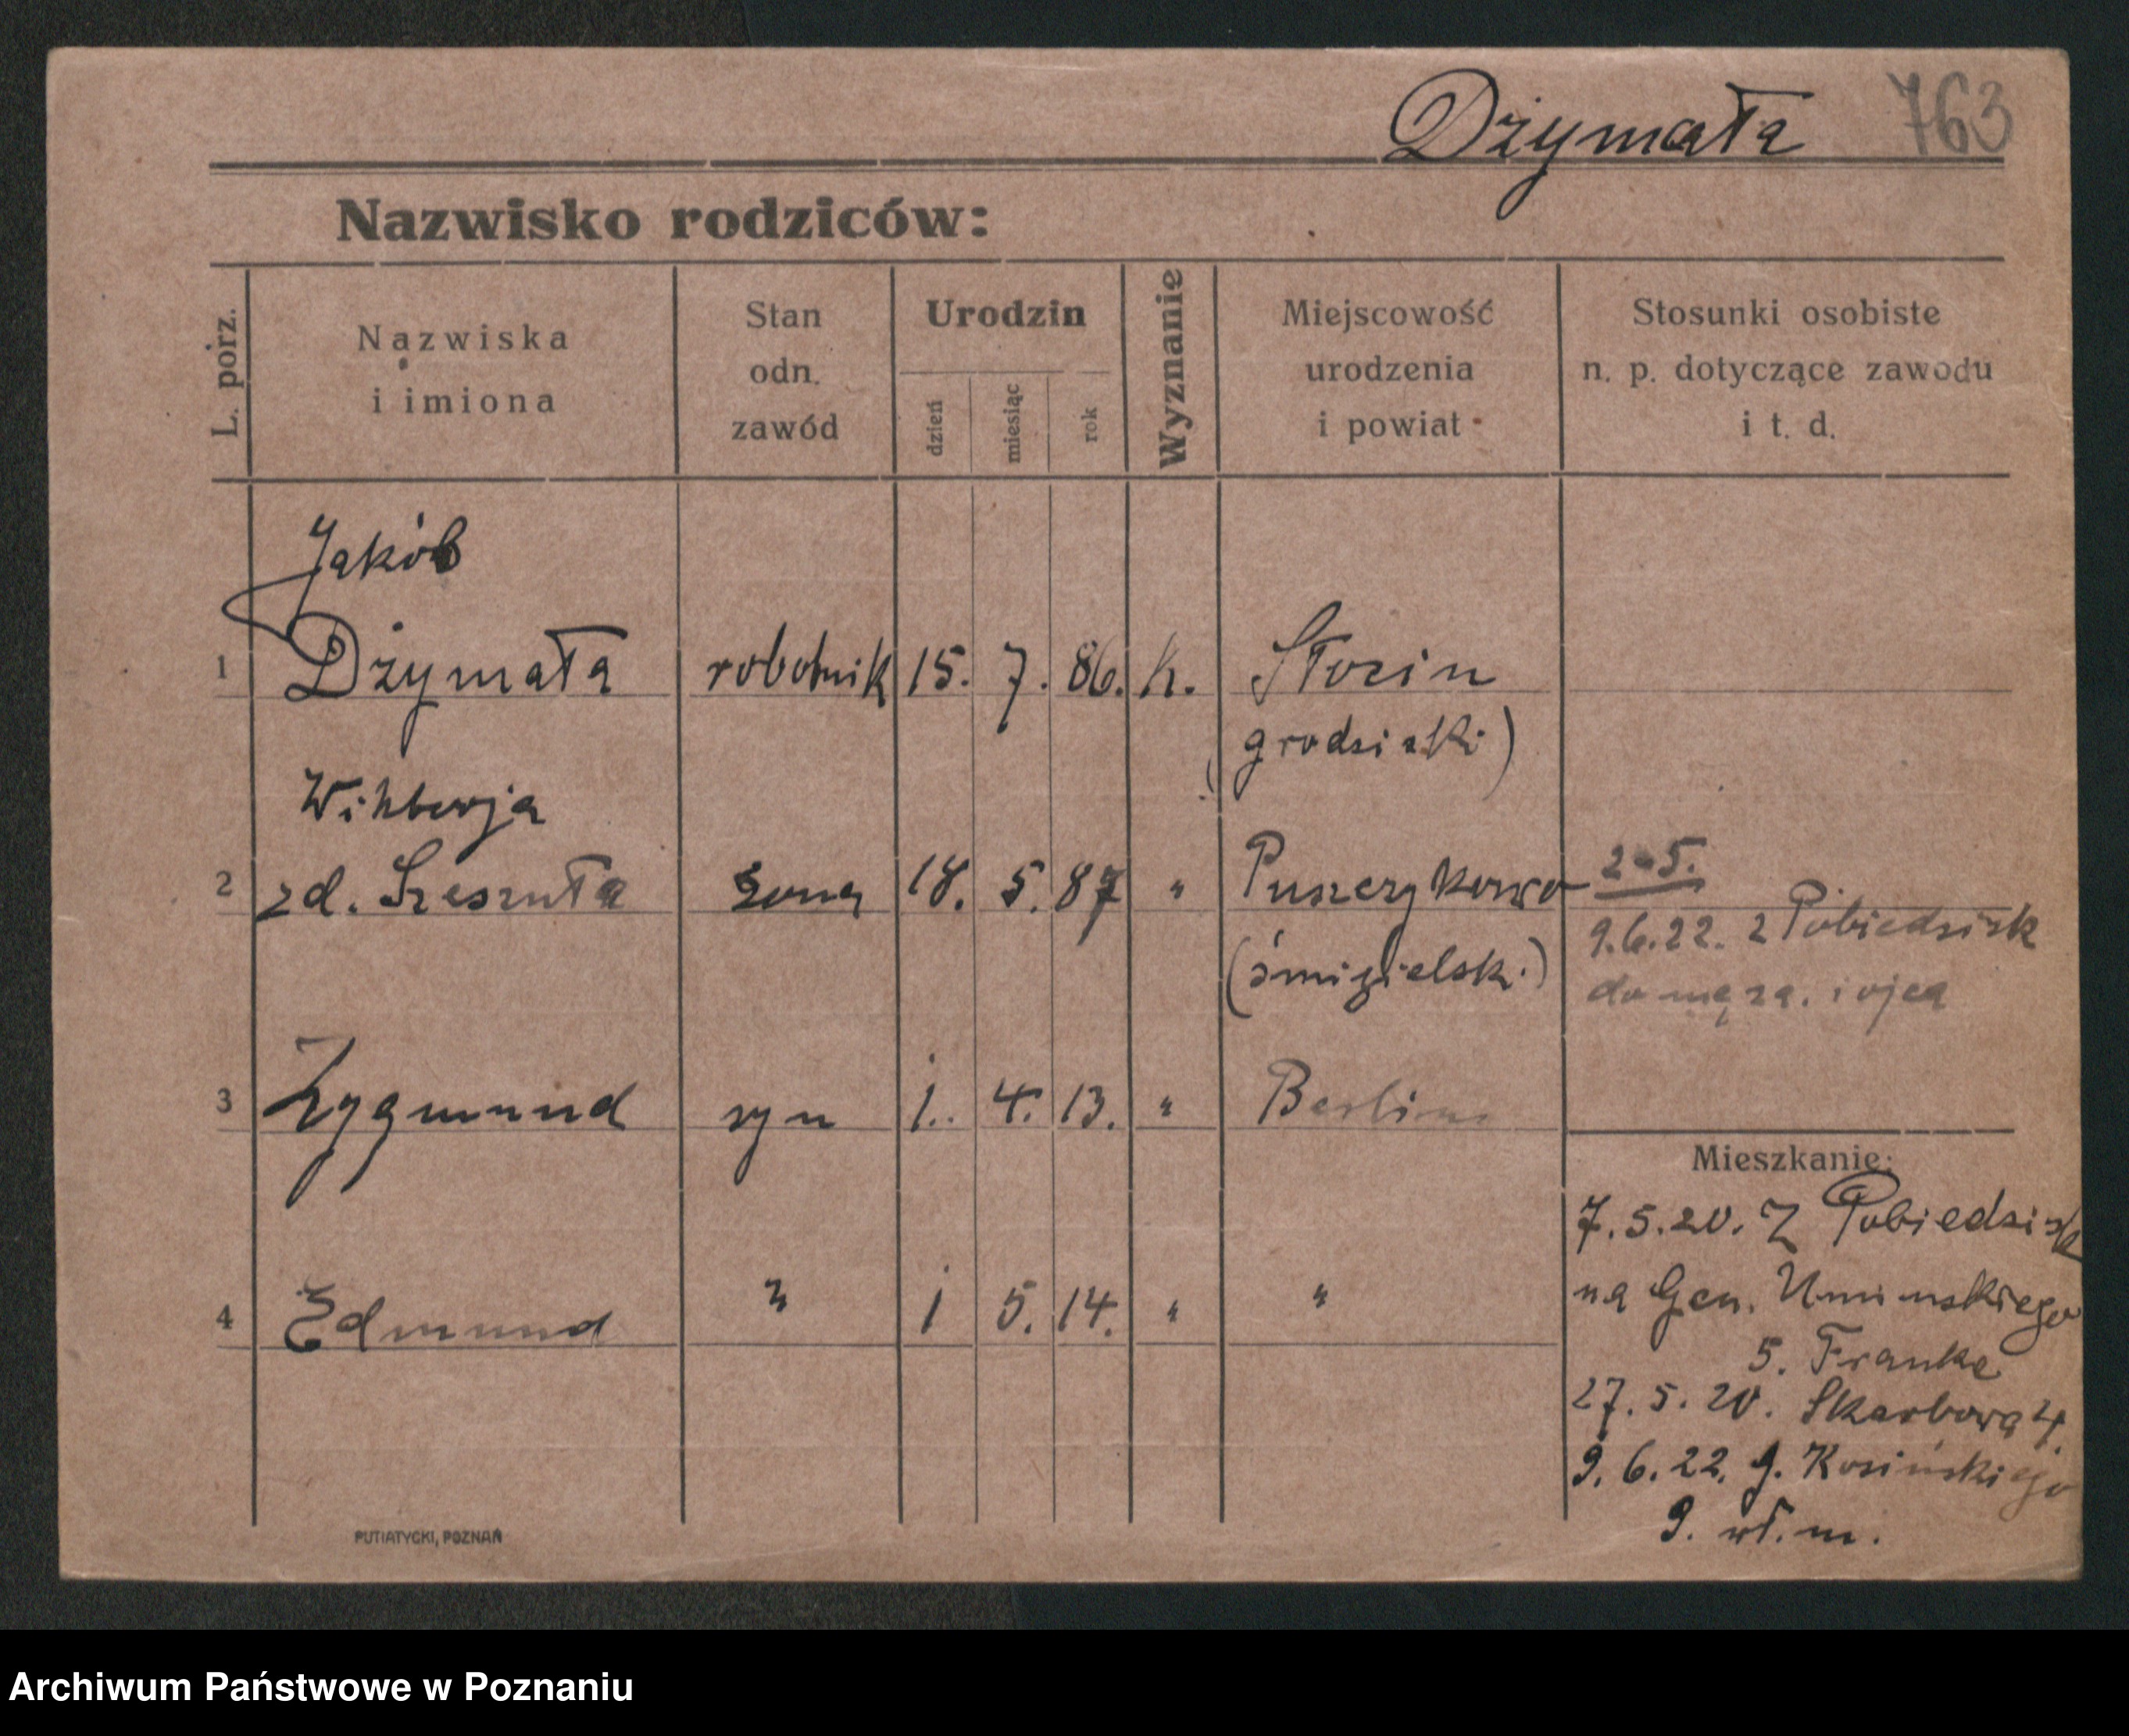 Dżymała 763
Nazwisko rodziców:
L. porz.
Nazwiska
i imiona
Stan
odn.
zawód
Urodzin
dzień
miesiąc
rok
Wyznanie
Miejscowość
urodzenia
i powiat
Stosunki osobiste
n. p. dotyczące zawodu
i t. d.
Jakób
1 Dżymała robotnik 15. 7. 86. k.
grodziski)
2 zd. Szeszuła żona 18. 5. 87 " Puszczykowo
(śmigielski)
2-5.
9.6.22. z Pobiedzisk
do męża. i ojca
3 Zygmund syn 1. 4. 13. " Berlin
4 Edmund " 1 5. 14. " "
Mieszkanie:
7.5.20. Z Pobiedzisk
na Gen. Umińskiego
5. Franke
27.5.20. Skarbowa 4.
9.6.22. g. Kosińskiego
9. wł. m.
PUTIATYCKI, POZNAŃ
Archiwum Państwowe w Poznaniu